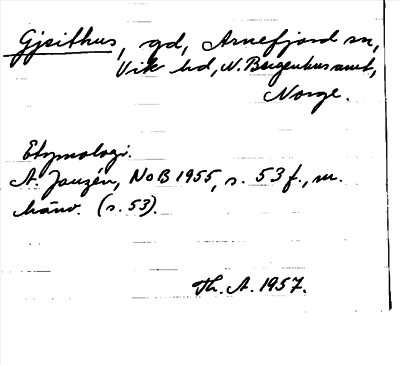 Gjeithus, gd, Arnefjord sn,
Vik hd, N. Bergenhus amt,
Norge.
Etymologi.
A. Janzén, NoB 1955, s. 53 f., m.
hänv. (s. 53).
Th. A. 1957.